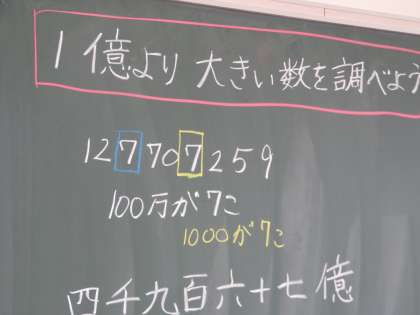 1億より大きい数を調べよう
127707259
100万が7こ
1000が7こ
四千九百六十七億